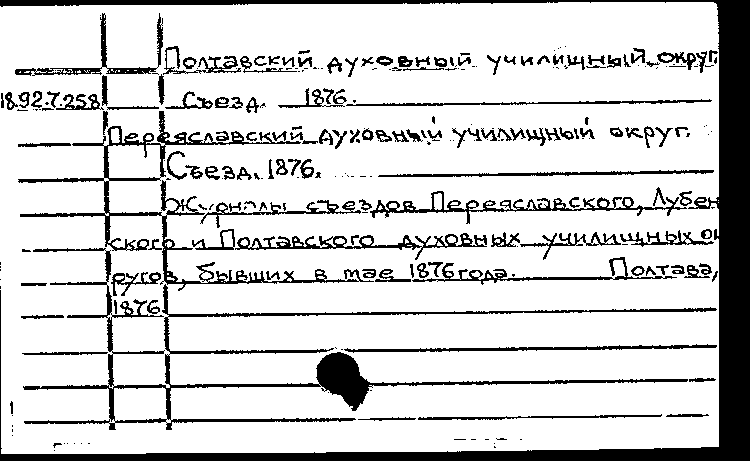 Полтавский духовный училищный округ.
18.92.7.258 Съезд. 1876.
Переяславский духовный училищный округ.
Съезд. 1876.
Журналы съездов Переяславского, Лубен
ского и Полтавского духовных училищных ок
ругов, бывших в мае 1876 года. Полтава,
1876.